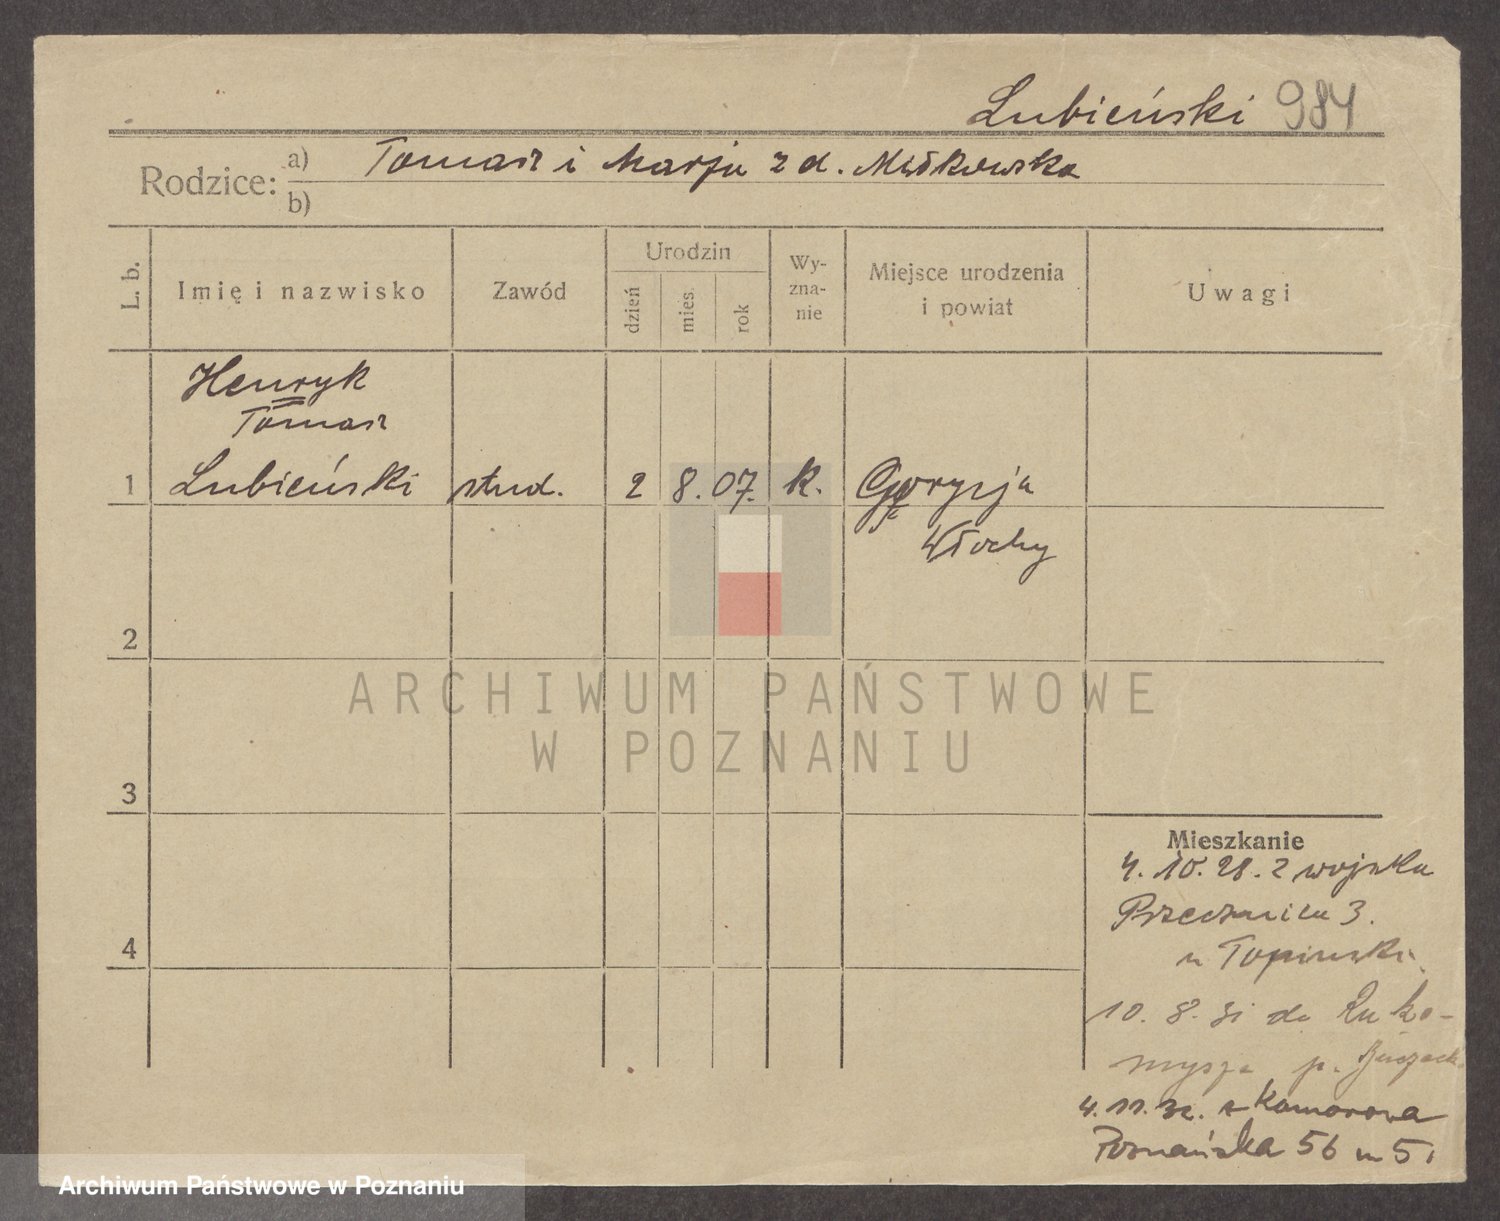 Lubieński 984
Rodzice: a) Tomasz i Marja z d.
b)
L. b.
Imię i nazwisko
Zawód
Urodzin
dzień
mies.
rok
Wy-
zna-
nie
Miejsce urodzenia
i powiat
Uwagi
Henryk
Tomasz
1 Lubieński stud. 2 8. 07. k. Gorycja
Włochy
2
3
4
Mieszkanie
4. 10. 28. z wojska
Przecznica 3.
u Topinski
10. 8. 31 do Ruko-
mysza p. Buczacz
4. 11. 32. z Komorowa
Poznańska 56 m 5.
ARCHIWUM PAŃSTWOWE
W POZNANIU
Archiwum Państwowe w Poznaniu